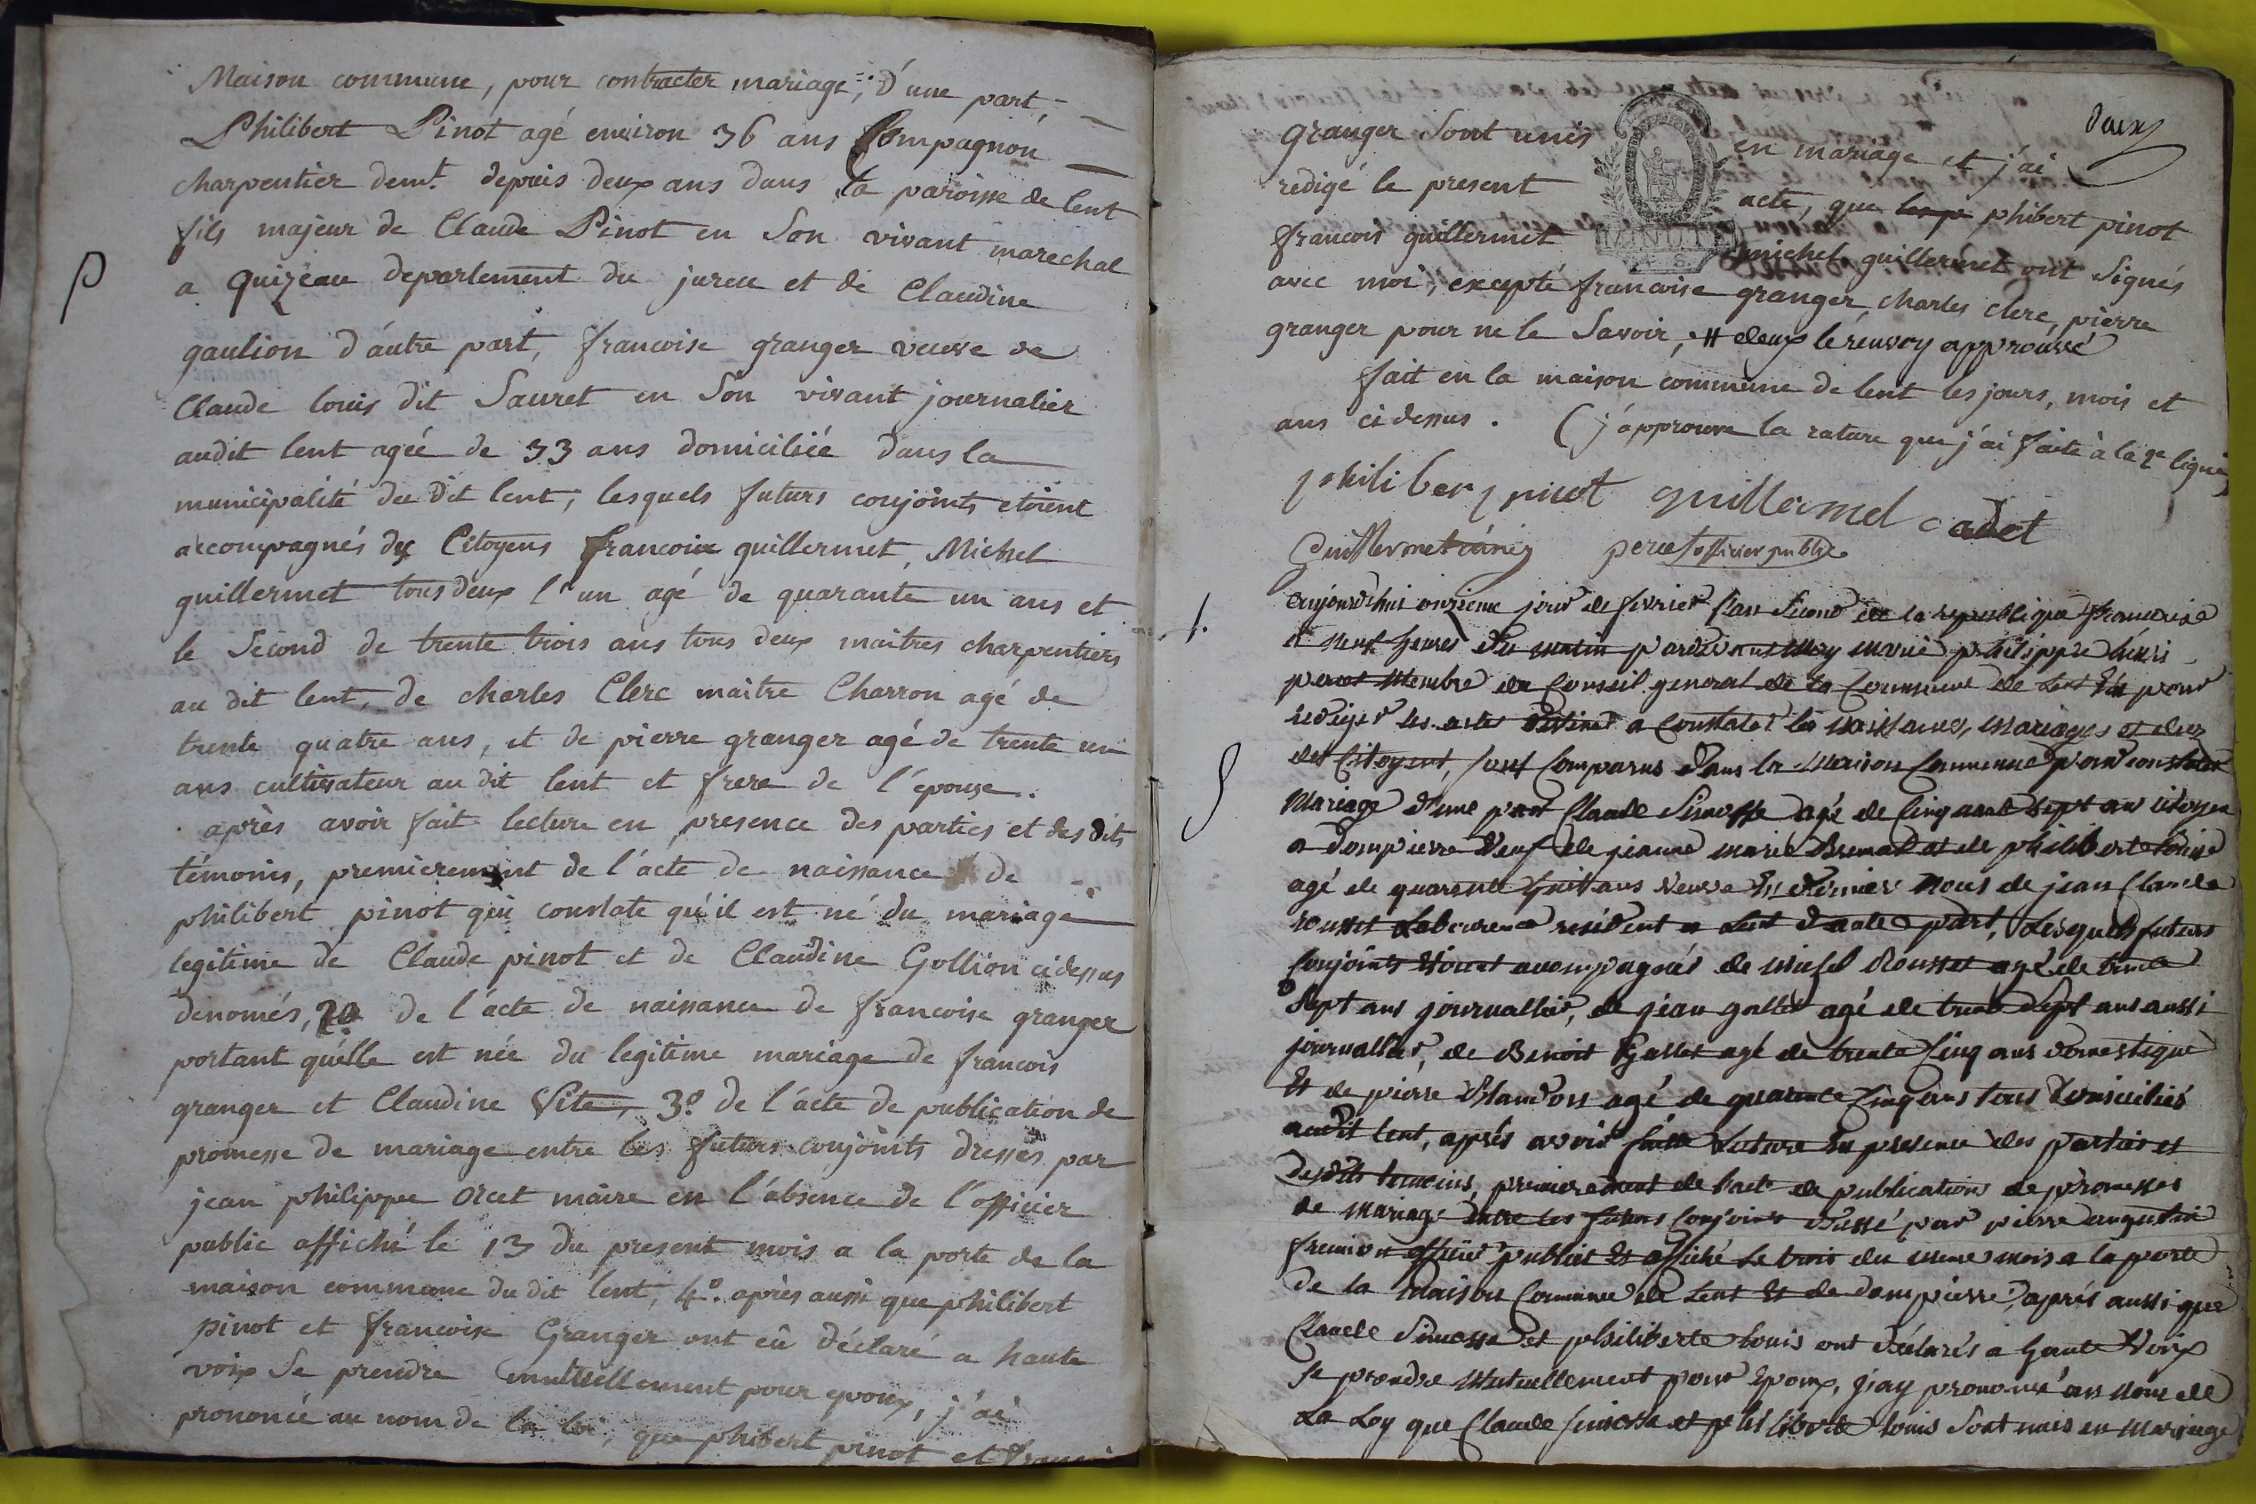 Maison commune, pour contracter mariage, D'une part
Philibert Pinot agé environ 36 ans Compagnon
charpentier demt. depuis deux ans dans la paroisse de lent
fils majeur de Claude Pinot en Son vivant marechal
a quizeau departement du jura et de Claudine
gaulion d'autre part, francoise granger veuve de
Claude louis dit Sauret en Son vivant journalier
audit lent agée de 33 ans domiciliée dans la
municipalité du dit lent, lesquels futurs conjoints etoient
accompagnés des Citoyens francois guillermet, Michel
guillermet tous deux l'un agé de quarante un ans et
le Second de trente trois ans tous deux maitres charpentiers
au dit lent, de charles Clerc maitre Charron agé de
trente quatre ans, et de pierre granger agé de trente un
ans cultivateur au dit lent et frere de l'épouse.
après avoir fait lecture en presence des parties et des dits
témoins, premierement de l'acte de naissance de
philibert pinot qui constate qu'il est né du mariage
legitime de Claude pinot et de Claudine Gollion cidessus
denomés, 2o de l'acte de naissance de francoise granger
portant qu'elle est née du legitime mariage de francois
granger et Claudine Vite, 3o. de l'acte de publication de
promesse de mariage entre les futurs conjoints dressés par
jean philippe orcet maire en l'absence de l'officier
public affiché le 13 du present mois a la porte de la
maison commune du dit lent, 4o. après aussi que philibert
pinot et francoise Granger ont eû déclaré a haute
voix Se prendre mutuellement pour epoux, j'ai
prononcé au nom de la loi, que phibert pinot et
deux
granger Sont unis en mariage et j'ai
redigé le present acte, que phibert pinot
francois guillermet michel guillermet ont Signés
MINUTE
avec moi, excepté francoise granger, charles clerc, pierre
granger pour ne le Savoir, # deux le renvoy approuvé
fait en la maison commune de lent les jours, mois et
ans cidessus. (j'approuve la rature que j'ai faite à la 2e ligne)
philibert pinot guillermet cadet
Guillermet perret officier public
1.
aujourdhui onzieme jour de fevrier l'an Second de la republique francoise
a neuf heures du matin pardevant Moy marie philippe henri
perret Membre du Conseil general de la Commune de Lent Elu pour
rediger les actes destinés a Constater les naissances, Mariages et deces
des Citoyens, sont Comparus dans la Maison Commune pour contracter
Mariage d'une part Claude Simosse agé de Cinquante sept ans citoyen
a Dompierre Veuf de jeanne marie Brunet et de philiberte louis
agé de quarente huit ans Veuve en dernier Noces de jean Claude
rousset Laboureur resident a Lent d'autre part, Lesquels futurs
Conjoints etoient accompagnés de michel Rousset agé de trente
Sept ans journallier, de jean gallet agé de trente Sept ans aussi
journallier, de Benoit gallet agé de trente Cinq ans domestique
Et de pierre Blandon agé de quarente Cinq ans tous domiciliés
audit lent, après avoir faitte Lecture En presence des parties et
desdits temoins, premierement de l'acte de publication de promesses
de mariage Entre les futurs Conjoints dressé par pierre augustin
officier public Et affiché Le trois du meme mois a la porte
de la Maison Commune de Lent Et de dompierre, après aussi que
Claude Simosse et philiberte louis ont déclarés a haute Voix
Se prendre Mutuellement pour Epoux, j'ay prononcé au nom de
La Loy que Claude Simosse et philiberte louis Sont unis en Mariage